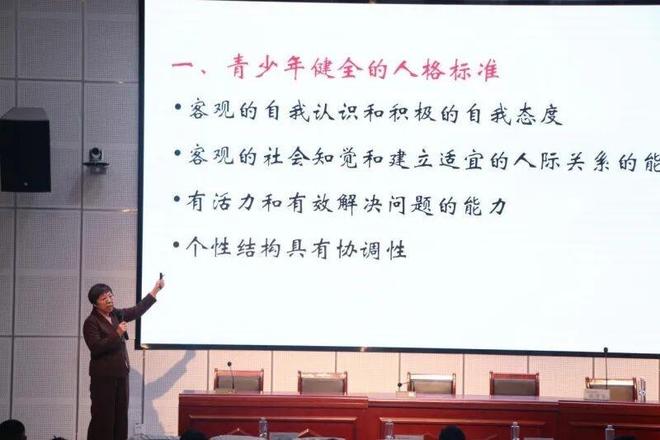 一、青少年健全的人格标准
•客观的自我认识和积极的自我态度
•客观的社会知觉和建立适宜的人际关系的能
•有活力和有效解决问题的能力
•个性结构具有协调性